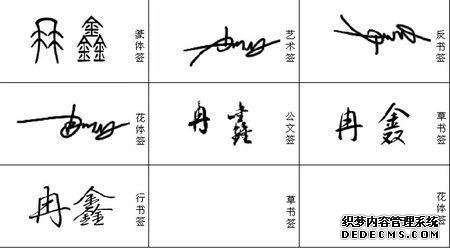 冉鑫 篆体签
艺术签
反书签
花体签
冉鑫 公文签
冉鑫 草书签
冉鑫 行书签
草书签
花体签
织梦内容管理系统
DEDECMS.COM